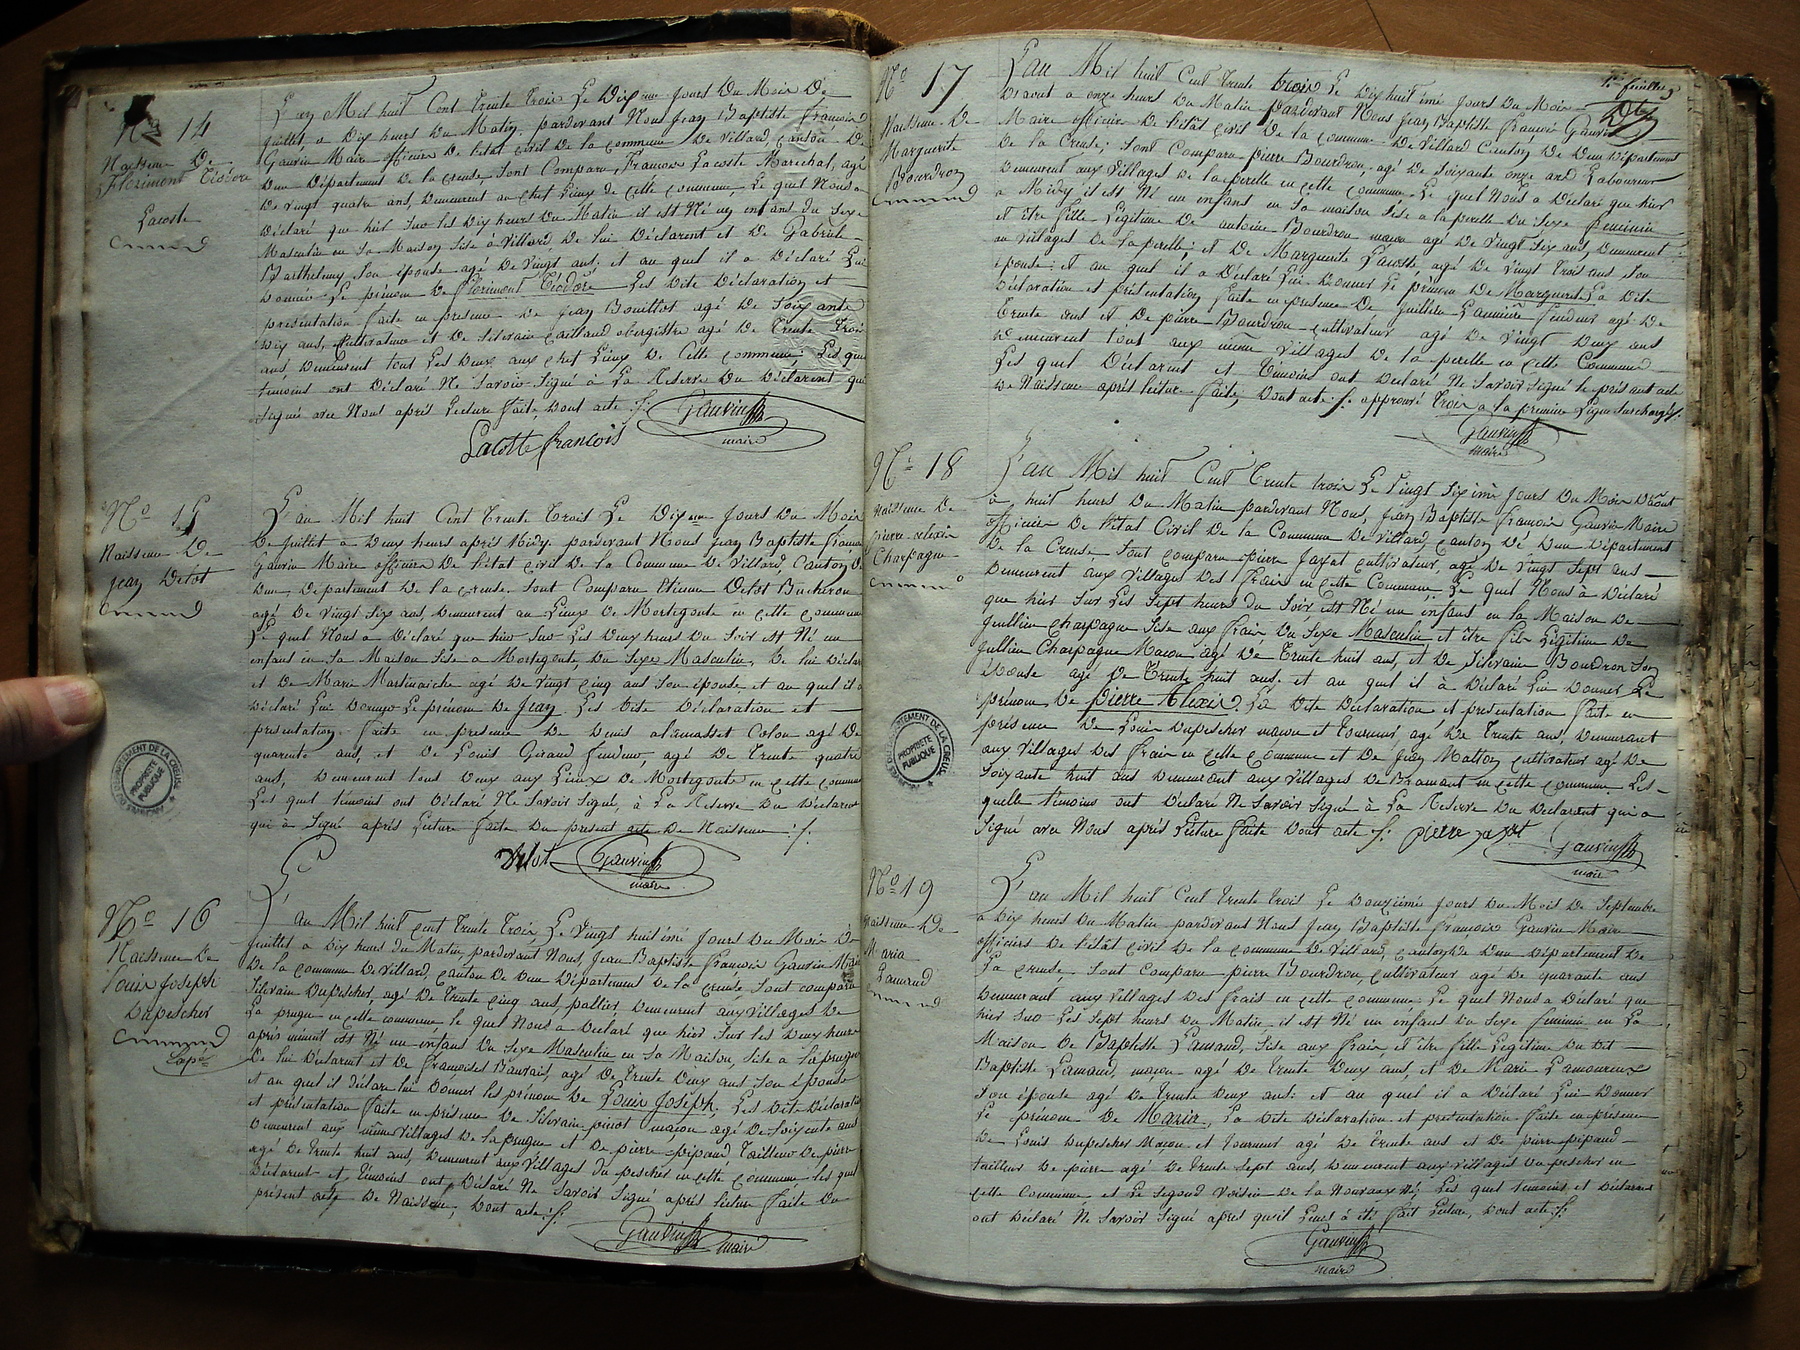 No 14
Naissance De
Florimont Téodore
Lacoste
L'an Mil huit Cent Trente Trois Le Dix eme Jours Du Mois De
Juillet, a Dix heurs Du Matin, pardevant Nous Jean Baptiste francois
Gauvin Maire officier De l'état civil De la commune De Villard, canton De
Dun Département De la creuse, Sont Comparu, francois Lacoste Maréchal, agé
De vingt quatre ans, Demeurent au chef Lieux De cette commune, Le quel Nous a
Déclaré que hier Sur les Dix heurs Du Matin il est Né un enfans du Sexe
Masculin en Sa Maison Sise à Villard, De lui Déclarent et De Gabriele
Barthelemy Son épouse agé De vingt ans, et au quel il a Déclaré Lui
Donner Le prénom De florimont Téodore Les Dite Déclaration et
présentation faite en présence De Jean Bouillot agé De Soixante
Dix ans, Cultivateur et De Silevain Caillaud obergiste agé De Trente Trois
ans Demeurent tout Les Deux aux chef Lieux De Cette commune, Les quel
temoins ont Déclaré Ne Savoir Signé à La Reserve Du Déclarent qui
Signé avec Nous aprés Lecture faite, Dont acte ./.
Gauvin
maire
Lacoste francois
No 15
Naissance De
Jean Delot
L'an Mil huit Cent Trente Trois Le Dix eme Jours Du Mois
De Juillet a Deux heurs aprés Midy, pardevant Nous Jean Baptiste francois
Gauvin Maire officier De l'état civil De la Commune De Villard, Canton De
Dun, Département De la creuse. Sont Comparu Etienne Delot Bucheron
agé De vingt Six ans, Demeurent au Lieux De Mortegoute en cette commune
Le quel Nous a Déclaré que hier Sur Les Deux heurs Du Soir est Né un
enfant en Sa Maison Sise a Mortegoute, Du Sexe Masculin, De lui Déclarent
et De Marie Martinaiche agé De vingt cinq ans Son épouse et au quel il a
Déclaré Lui Donner Le prénom De Jean Les Dite Déclaration et
présentation faite en présence De Denis alieuasset Colon agé De
quarente ans, et De Louis Giraud fendeur, agé De Trente quatre
ans, Demeurent tout Deux aux Lieux De Mortegoute en cette commune
Les quel témoins ont Déclaré Ne Savoir Signé, à La Reserve Du Déclarent
qui à Signé aprés Lecture faite Du présent acte De Naissance ./.
Delot Gauvin
maire
No 16
Naissance De
Louis Joseph
Dupescher
L'an Mil huit cent Trente Trois, Le Vingt huit ieme Jours Du Mois De
Juillet a Dix heurs du Matin, pardevant Nous, Jean Baptiste francois Gauvin Maire
De la commune De Villard, canton De Dun Département De la creuse Sont comparu
Silevain Dupescher, agé De Trente cinq ans, Demeurent aux Villages De
La prugne en cette commune le quel Nous a Déclaré que hier Sur les Deux heurs
aprés minuit est Né un enfans Du Sexe Masculin en Sa Maison, Sise a la prugne
De lui Déclarent et De francoise Bauvais, agé De Trente Deux ans Son épouse
et au quel il déclare lui Donner les prénom De Louis Joseph. Les Dite Déclaration
et présentation faite en présence De Silevain pinot maçon agé De Soixcente ans
Demeurent aux même Villages De la prugne et De pierre pipaud Tailleur De pierre
agé De Trente huit ans, Demeurent aux Villages du pescher en cette commune les quel
Déclarent et Témoins ont Déclaré Ne Savoir Signé aprés lecture faite Du
présent acte De Naissance, Dont acte ./.
Gauvin maire
No 17
Naissance De
Marguerite
Bourdron
L'an Mil huit Cent Trente trois Le Dix huit ième Jours Du Mois
Daout a onze heurs Du Matin pardevant Nous Jean Baptiste francois Gauvin
Maire officier De l'état civil De la commune De Villard Canton De Dun Département
De la Creuse, Sont Comparu pierre Bourdron, agé De Soixante onze ans Laboureur
Demeurent aux Villages De la perelle en cette commune Le quel Nous a Déclaré que hier
a Midy il est Né un enfans en Sa maison Sise a la perelle Du Sexe feminin
et être fille Légitime De antoine Bourdron maçon agé De Vingt Six ans, Demeurent
au Villages De la perelle, et De Marguerite Lacoste, agé De Vingt Trois ans Son
épouse: et au quel il a Déclaré Lui Donner Le prénom De Marguerite La Dite
Déclaration et présentation faite en présence De Jeuillien Laumiere fendeur agé De
Trente ans et De pierre Bourdron cultivateur agé De Vingt Deux ans
Demeurent tout aux même Villages De la perelle en cette Commune
Les quel Déclarent et Témoins ont Déclaré Ne Savoir Signé le présent acte
De Naissance aprés lecture faite, Dont acte ./. approuvé trois a la premiere Ligne Surchargé ./.
Gauvin
maire
No 18
Naissance De
pierre alexis
Charpagne
L'an Mil huit Cent Trente trois Le Vingt Six ième Jours Du Mois Daout
à huit heurs Du Matin pardevant Nous, Jean Baptiste francois Gauvin Maire
officier De l'état Civil De la Commune De Villard, canton De Dun Département
De la Creuse Sont comparu pierre Jayat cultivateur, agé De Vingt Sept ans
Demeurent aux Villages Des frais en cette Commune, Le quel Nous à Déclaré
que hier Sur Les Sept heurs du Soir est Né un enfans en la Maison De
Jeullien Charpagne Sise aux frais Du Sexe Masculin et être fils Légitime De
Jullien Charpagne Macon agé De Trente huit ans, et De Silevaine Bourdron Son
épouse agé De Trente huit ans. et au quel il à Déclaré Lui Donner Le
prénom De pierre Alexis La Dite Déclaration et présentation faite en
présence De Louis Dupescher macon et Tourneur, agé De Trente ans, Demeurant
aux Villages Des frais en cette Commune et De Jean Matton cultivateur agé De
Soixante huit ans Demeurant aux Villages De Bramant en cette commune Les
quelle témoins ont Déclaré Ne Savoir Signé à La Reserve Du Déclarent qui a
Signé avec Nous aprés Lecture faite Dont acte ./. pierre jayat
Gauvin
maire
No 19
Naissance De
Maria
Lamaud
L'an Mil huit Cent Trente Trois Le Douzième Jours Du Mois De Septembre
a Dix heurs Du Matin pardevant Nous Jean Baptiste francois Gauvin Maire
officiers De l'état civil De la commune De Villard, canton De Dun Département De
La creuse. Sont Comparu pierre Bourdron, cultivateur agé De quarante ans
Demeurant aux Villages Des frais en cette commune Le quel Nous a Déclaré que
hier Sur Les Sept heurs Du Matin il est Né un enfans Du Sexe feminin en La
Maison De Baptiste Lamaud, Sise aux frais, et être fille Légitime Du Dit
Baptiste Lamaud, maçon agé De Trente Deux ans, et De Marie Lamoureux
Son épouse agé De Trente Deux ans: et au quel il a Déclaré Lui Donner
Le prénom De Maria, La Dite Déclaration et présentation faite en présence
De Louis Dupescher Maçon et Tourneur agé De Trente ans et De pierre pipaud
tailleur De pierre agé De Trente Sept ans, Demeurent aux Villages Dupescher en
cette Commune et Le Segond Voisin De la Nouveaux Né, Les quel temoins et Déclarent
ont Déclaré Ne Savoir Signé aprés qu'il Leurs à été fait Lecture, Dont acte ./.
Gauvin
maire
PROPRIETE PUBLIQUE